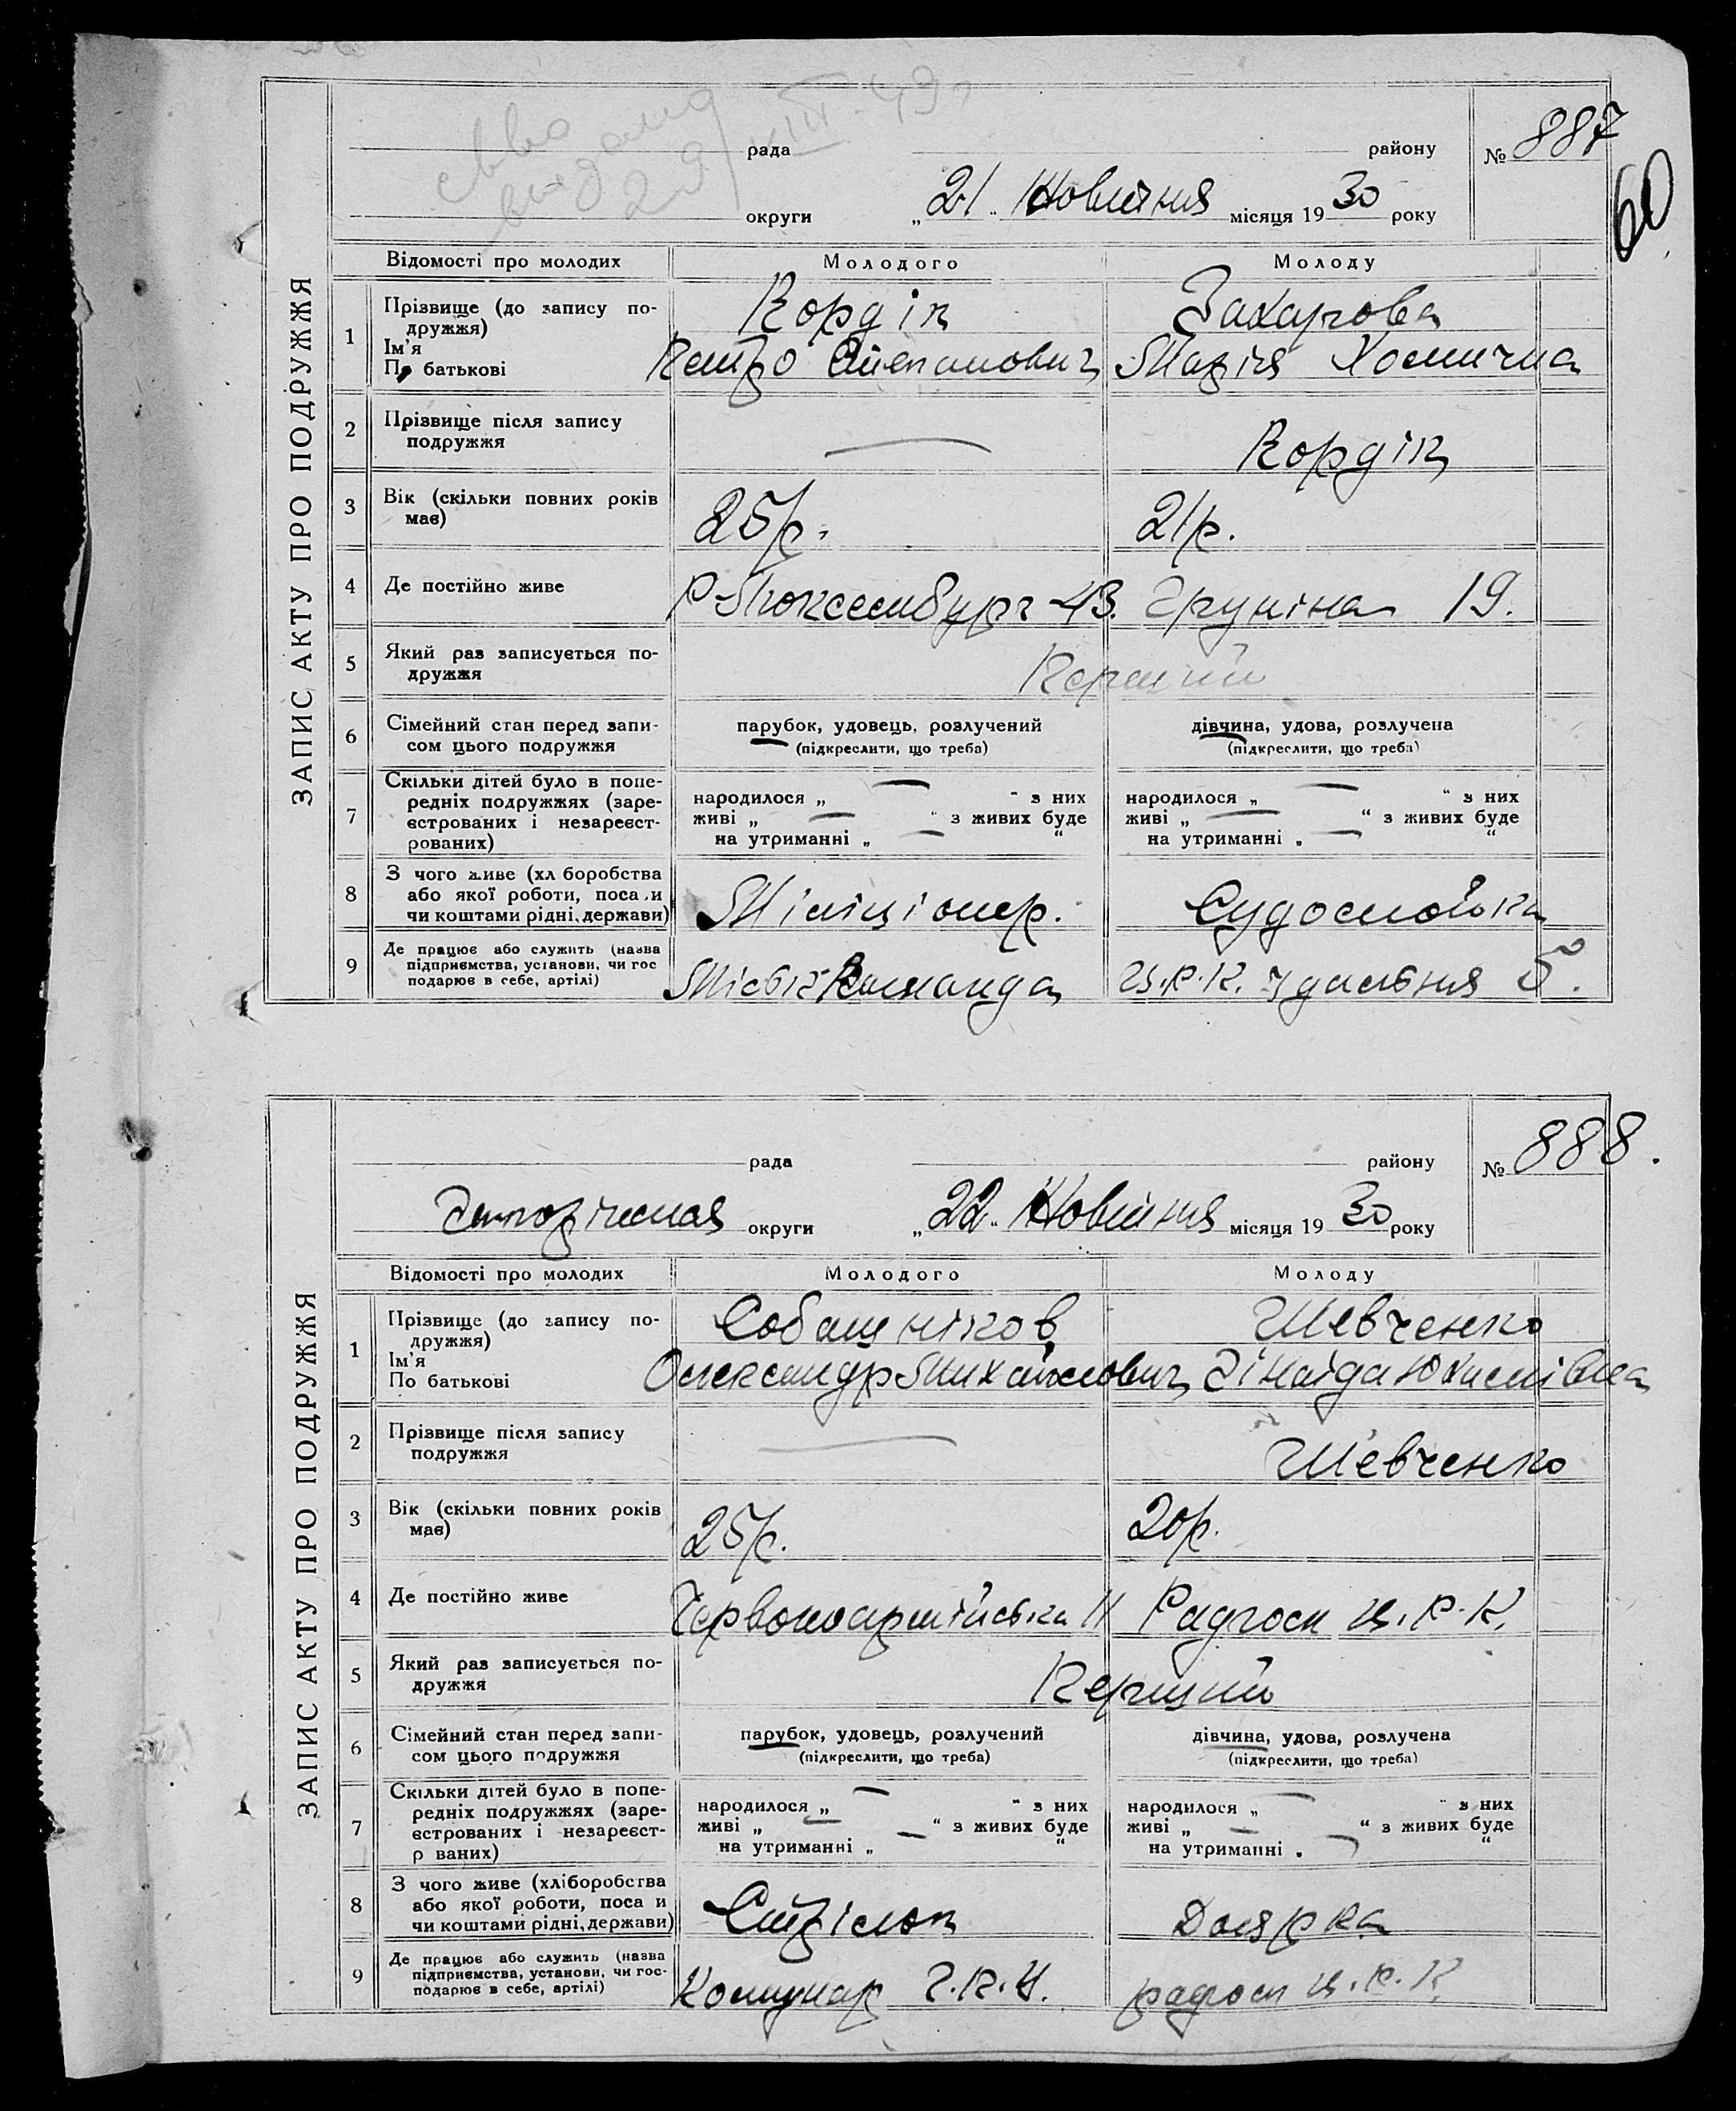 св-во
выдано
29/VIII-49 г
рада району № 887
60
округи „21“ Жовтня місяця 1930 року
ЗАПИС АКТУ ПРО ПОДРУЖЖЯ
Відомості про молодих Молодого Молоду
1 Прізвище (до запису подружжя) Кордік Захарова
Ім'я
По батькові Петро Степанович Марія Хомична
2 Прізвище після запису подружжя — Кордік
3 Вік (скільки повних років має) 25 р. 21 р.
4 Де постійно живе Р-Люксембург 43. 19.
5 Який раз записується подружжя Перший
6 Сімейний стан перед записом цього подружжя парубок, удовець, розлучений дівчина, удова, розлучена
(підкреслити, що треба) (підкреслити, що треба)
7 Скільки дітей було в попередніх подружжях (зареєстрованих і незареєстрованих)
народилося „ — “ з них народилося „ — “ з них
живі „ — “ з живих буде живі „ — “ з живих буде
на утриманні „ — “ на утриманні „ — “
8 З чого живе (хліборобства або якої роботи, посади чи коштами рідні, держави) Міліціонер. Судомойка
9 Де працює або служить (назва підприємства, установи, чи господарює в себе, артілі) Міськ Команда Ц.Р.К. їдальня 5.
рада району № 888.
округи „22“ Жовтня місяця 1930 року
ЗАПИС АКТУ ПРО ПОДРУЖЖЯ
Відомості про молодих Молодого Молоду
1 Прізвище (до запису подружжя) Собашніков Шевченко
Ім'я
По батькові Олександр Михайлович Зінаїда Юхимівна
2 Прізвище після запису подружжя — Шевченко
3 Вік (скільки повних років має) 25 р. 20 р.
4 Де постійно живе Червоноармійська 11 Радгосп Ц.Р.К.
5 Який раз записується подружжя Перший
6 Сімейний стан перед записом цього подружжя парубок, удовець, розлучений дівчина, удова, розлучена
(підкреслити, що треба) (підкреслити, що треба)
7 Скільки дітей було в попередніх подружжях (зареєстрованих і незареєстрованих)
народилося „ — “ з них народилося „ — “ з них
живі „ — “ з живих буде живі „ — “ з живих буде
на утриманні „ — “ на утриманні „ — “
8 З чого живе (хліборобства або якої роботи, посади чи коштами рідні, держави) Стрілок Доярка
9 Де працює або служить (назва підприємства, установи, чи господарює в себе, артілі) Комунар радгосп Ц.Р.К.